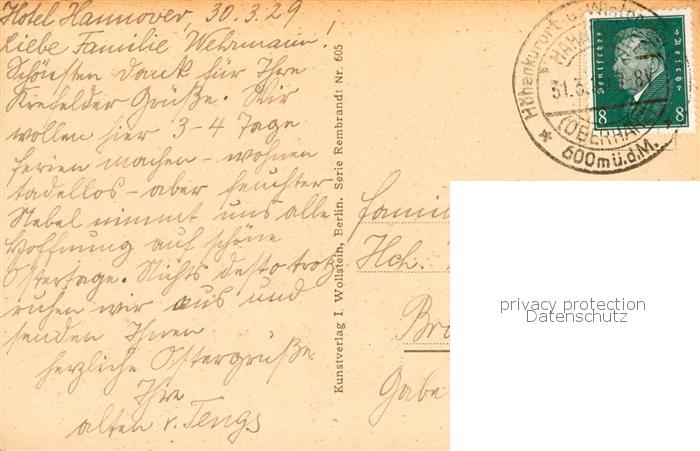 Hotel Hannover, 30.3.29
Liebe Familie Wehrmann!
Schönsten dank für Ihre
Krefelder Grüße. Wir
wollen hier 3-4 Tage
ferien machen - wohnen
tadellos - aber feuchter
Nebel nimmt uns alle
Hoffnung auf schöne
Ostertage. Nichts desto trotz
ruhen wir aus und
senden Ihnen
herzliche Ostergrüße
Ihre
alten v. Tengs
Kunstverlag I. Wollstein, Berlin. Serie Rembrandt Nr. 605
Höhenkurort u. Wint
HAHN
31.3. -8V
(OBERHARZ)
* 600 m ü.d.M.
Deutsches Reich
8 8
Famil
Hch.
Br
Gabe
privacy protection
Datenschutz